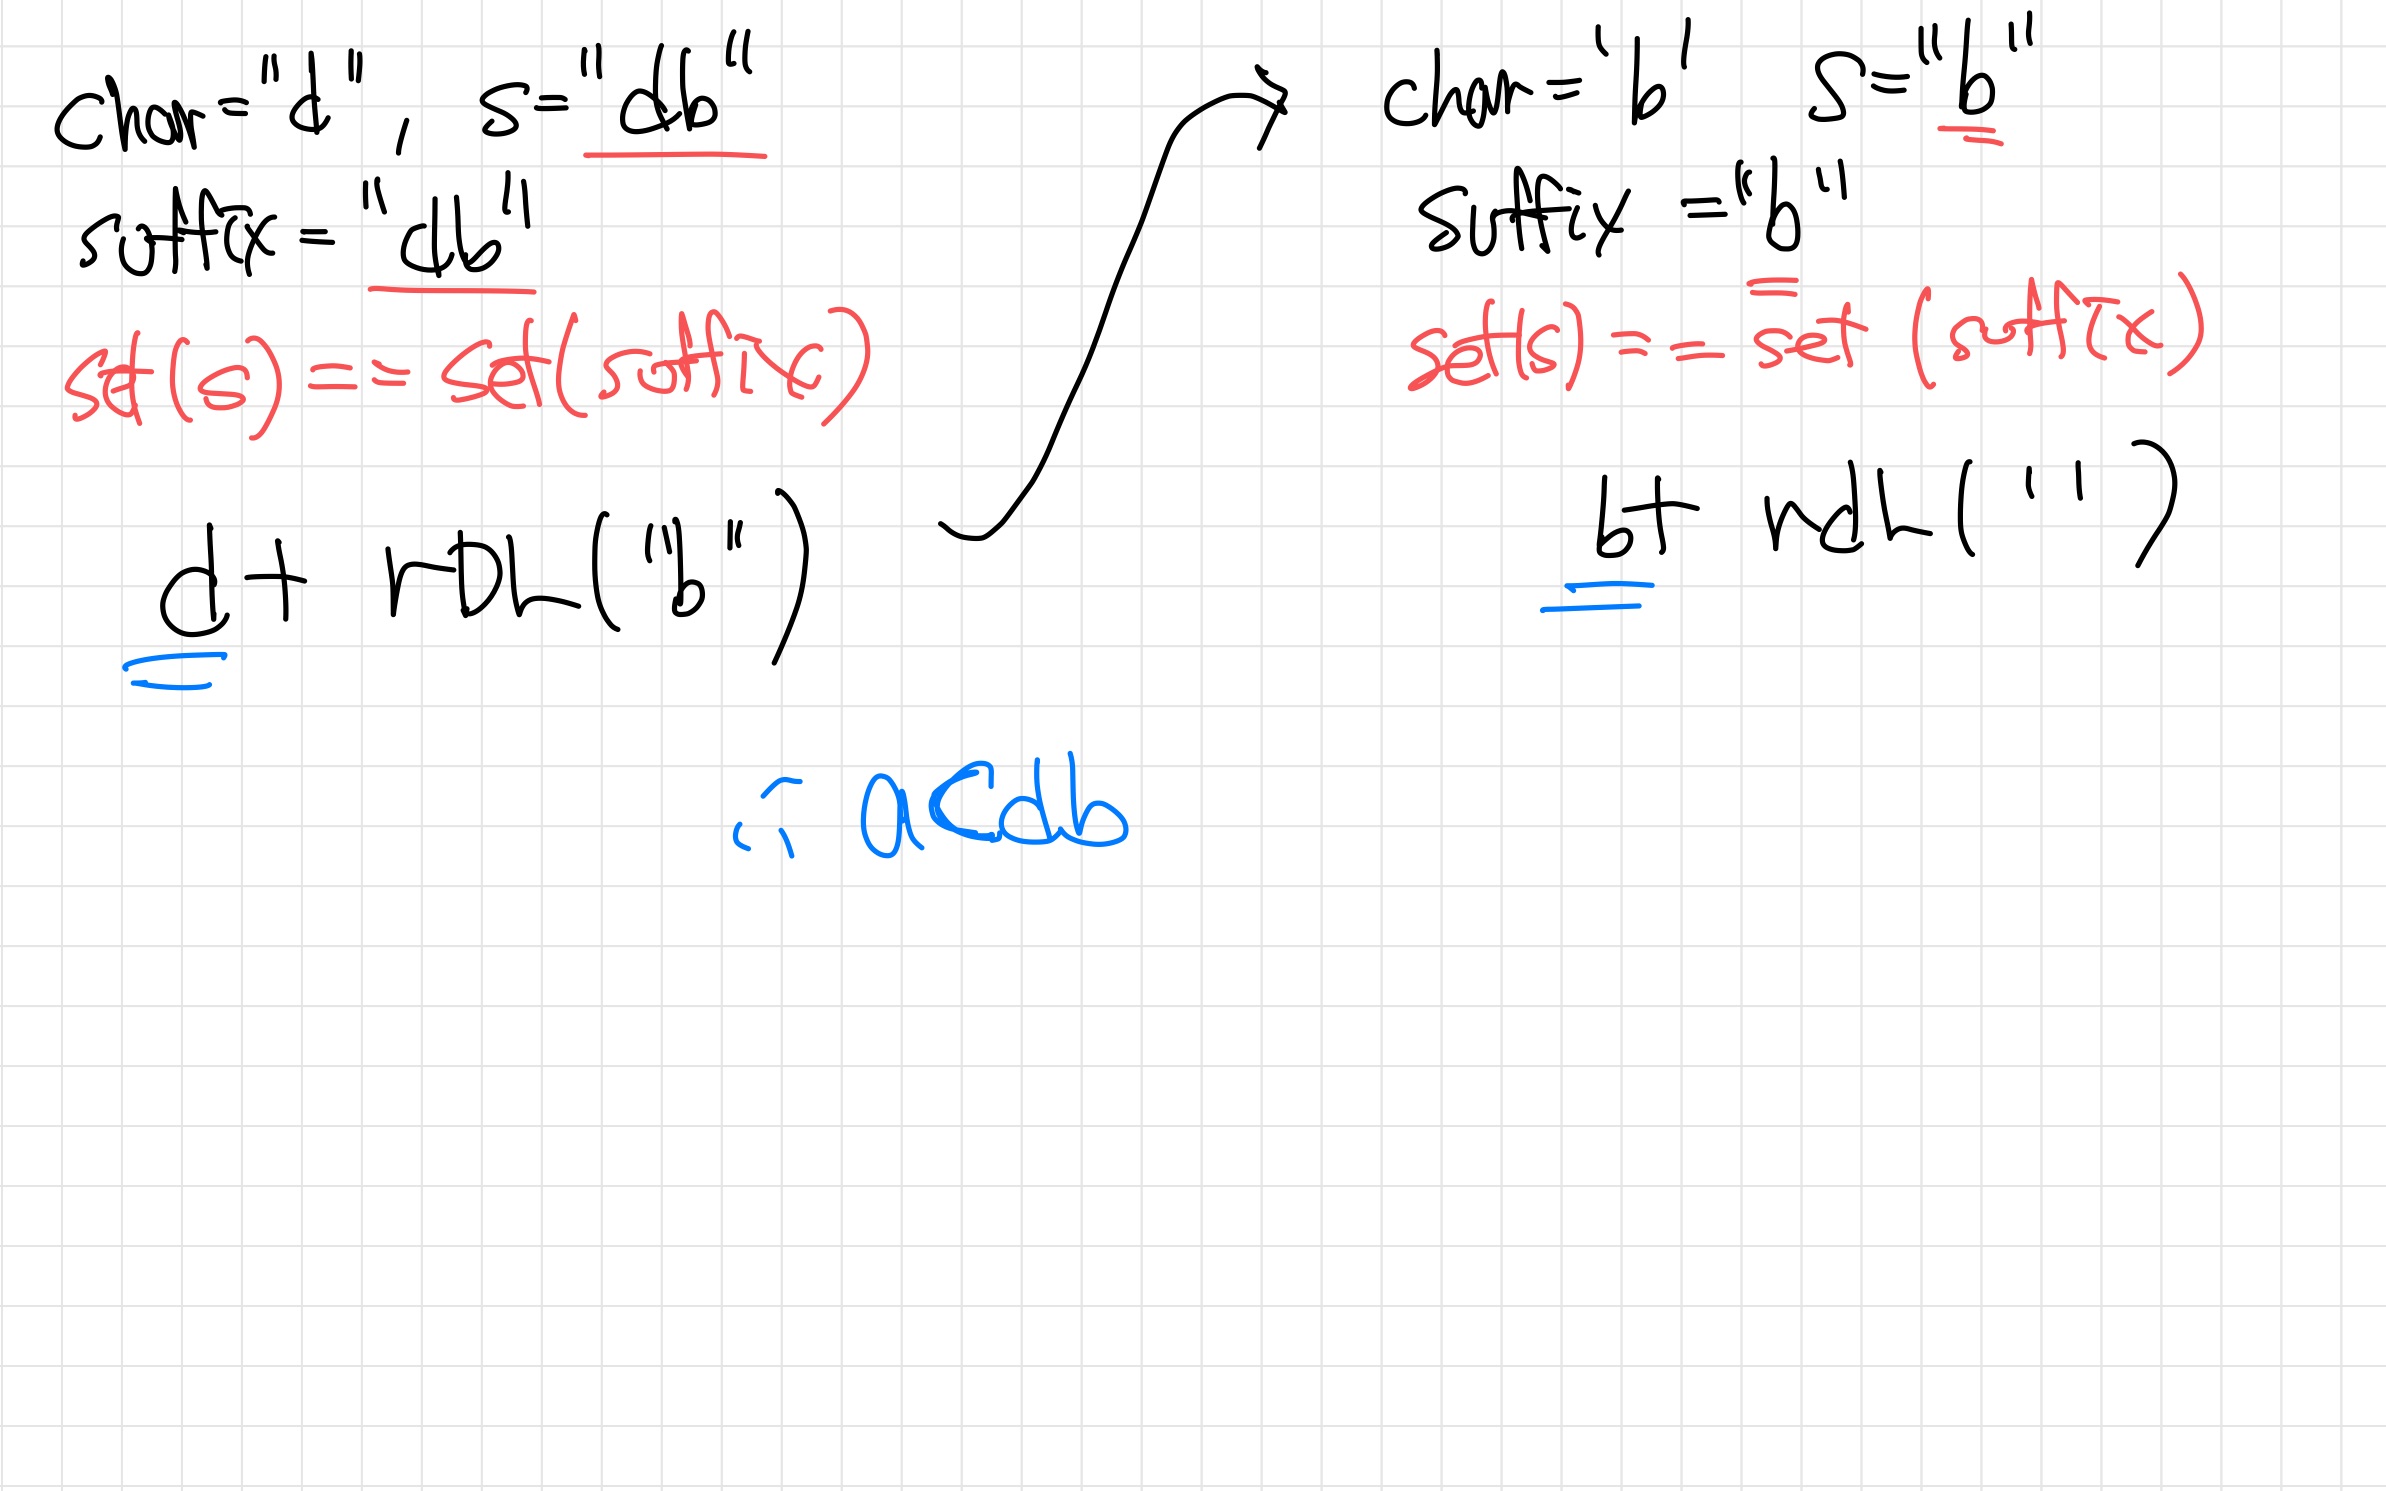 char="d", s="db"
suffix="db"
set(s) == set(suffix)
d+ rDL("b")
char='b' s="b"
suffix="b"
set(s) == set(suffix)
b+ rdL('')
∴ acdb